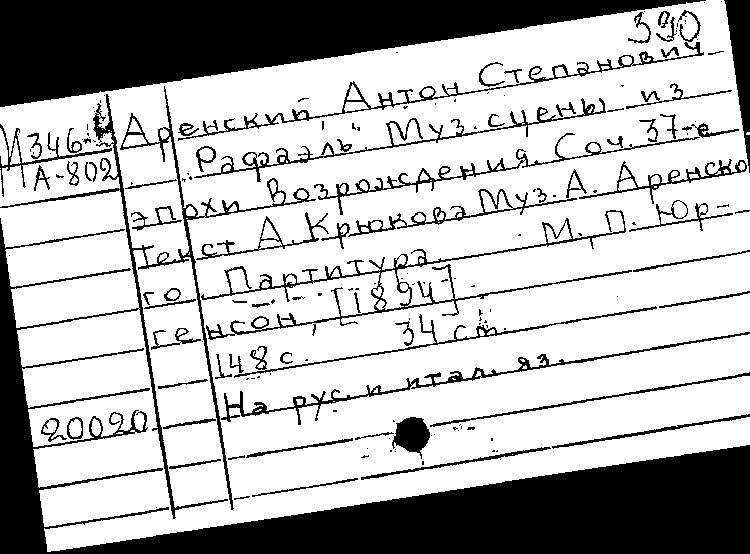 390
Аренский, Антон Степанович
И346-
А-802
„Рафаэль“. Муз. сцены из
эпохи Возрождения. Соч. 37-е
Текст А. Крюкова Муз. А. Аренско
го. Партитура. М., П. Юр-
генсон, [1894].
148 с. 34 cm.
На рус. и итал. яз.
20020